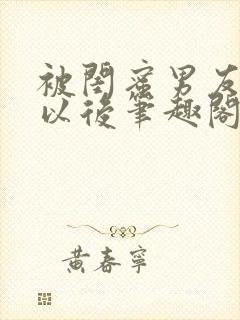 被閨蜜男友
以後筆趣閣
黃春寧